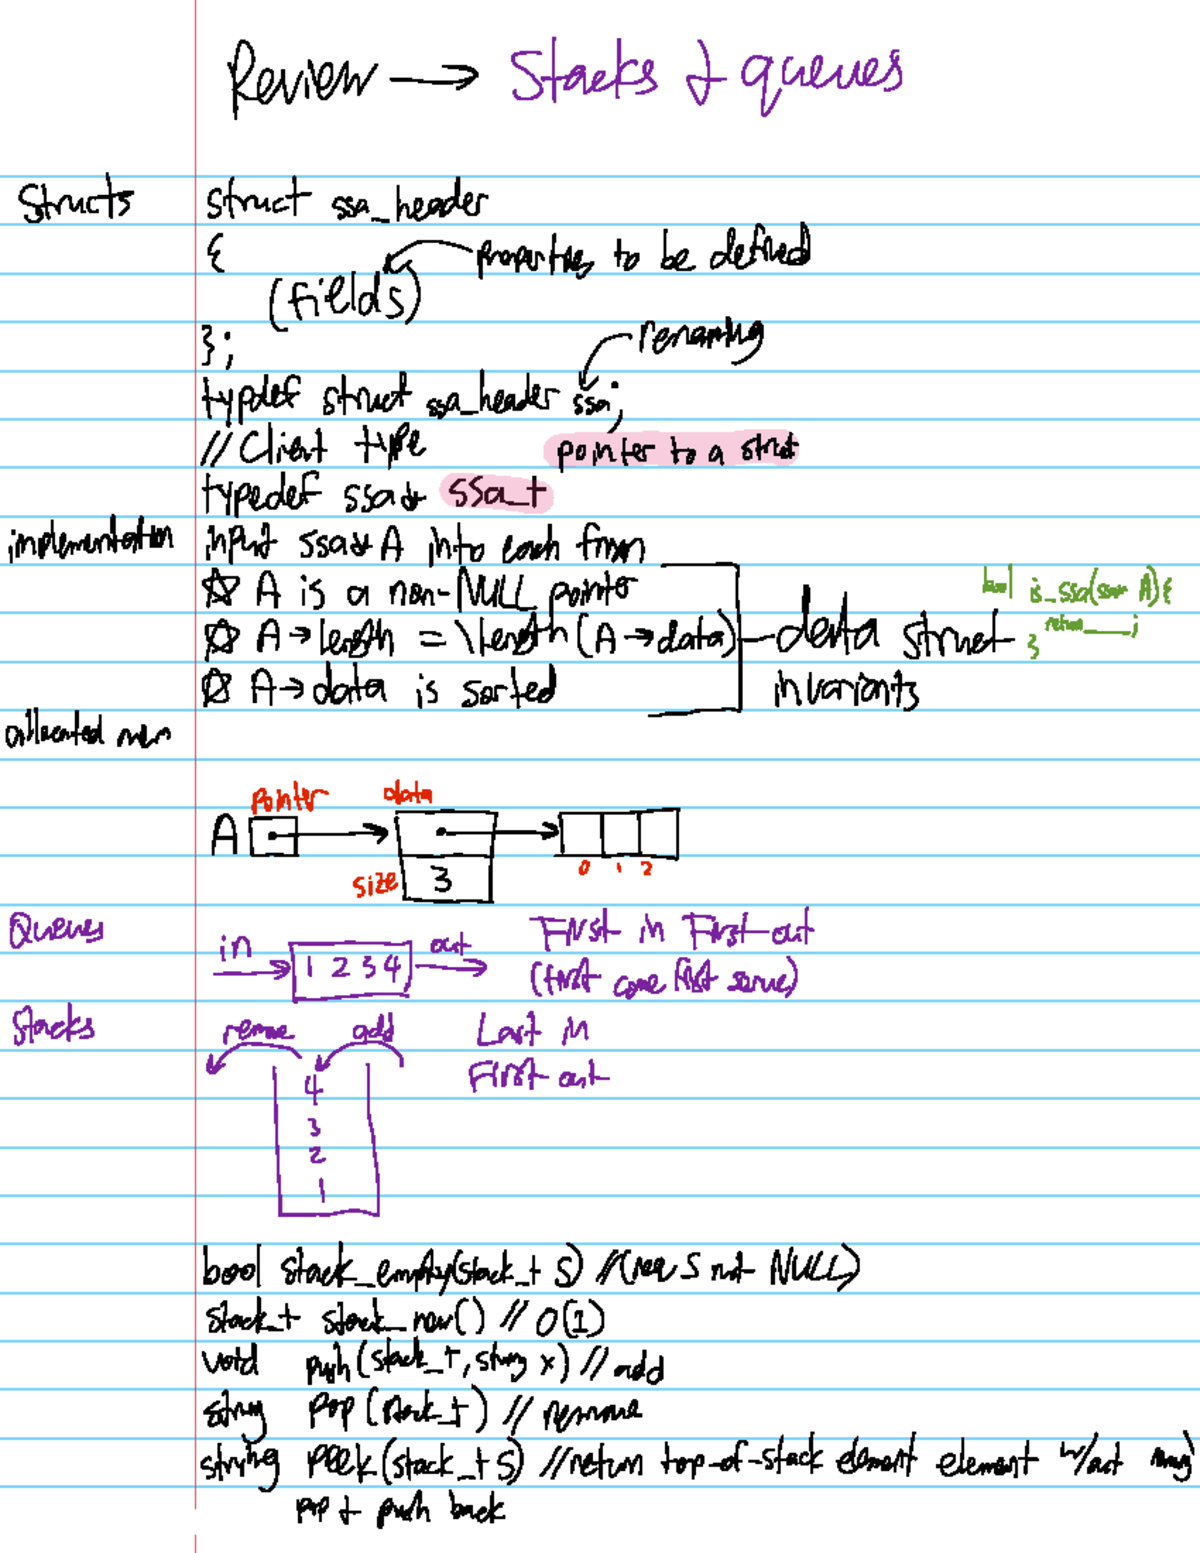 Review → Stacks & queues
Structs
struct ssa_header
{
properties to be defined
(fields)
};
renaming
typdef struct ssa_header ssa;
// Client type
pointer to a struct
typedef ssa* ssa_t
implementation
input ssa* A into each
☆ A is a non-NULL pointer
☆ A→length = \length(A→data)
☆ A→data is sorted
data struct
invariants
bool is_ssa(ssa* A){
return ____;
}
allocated mem
pointer
data
A
size
3
0 1 2
Queues
in
1 2 3 4
out
First in First out
(first come first serve)
Stacks
remove
add
Last in
First out
4
3
2
1
bool stack_empty(stack_t S) //(req S not NULL)
stack_t stack_new() // O(1)
void push(stack_t, string x) // add
string pop(stack_t) // remove
string peek(stack_t S) //return top-of-stack element element w/out
pop & push back